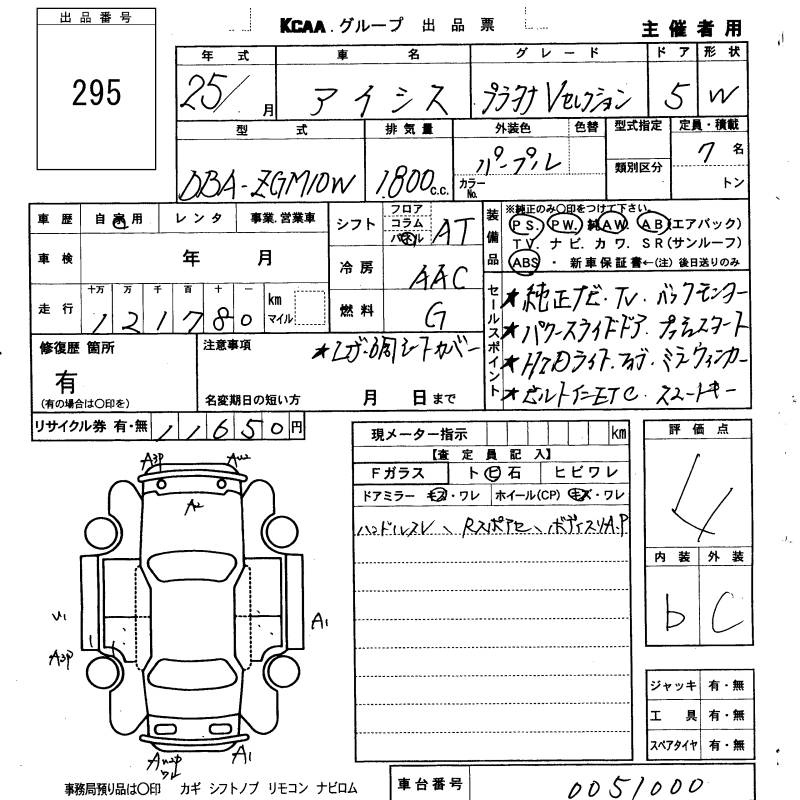 出品番号
295
KCAA.グループ 出品票
主催者用
年式 車名 グレード ドア 形状
25/ 月 アイシス プラタナ Vセレクション 5 W
型式 排気量 外装色 色替 型式指定 定員・積載
DBA-ZGM10W 1800 c.c. パープル カラーNo. 類別区分 7 名
トン
車歴 自家用 レンタ 事業.営業車
車検 年 月
走行 十万 万 千 百 十 一 km マイル
121780
シフト フロア コラム パネル AT
冷房 AAC
燃料 G
装備品 ※純正のみ〇印をつけて下さい。
PS. PW. 純AW. AB(エアバック)
TV. ナビ. カワ. SR(サンルーフ)
ABS ・ 新車保証書←(注)後日送りのみ
セールスポイント
★純正ナビ・TV・バックモニター
★パワースライドドア プッシュスタート
★HIDライト・フォグ・ミラーウィンカー
★ビルトインETC・スマートキー
修復歴 箇所
有
(有の場合は〇印を)
注意事項
名変期日の短い方 月 日まで
リサイクル券 有・無 11650円
現メーター指示 km
【査定員記入】
Fガラス トビ石 ヒビワレ
ドアミラー キズ・ワレ ホイール(CP) キズ・ワレ
ハンドルスレ、
評価点
4
内装 外装
b C
ジャッキ 有・無
工具 有・無
スペアタイヤ 有・無
A3P
A2
A1
A3P
A1
事務局預り品は〇印 カギ シフトノブ リモコン ナビロム
車台番号 0051000